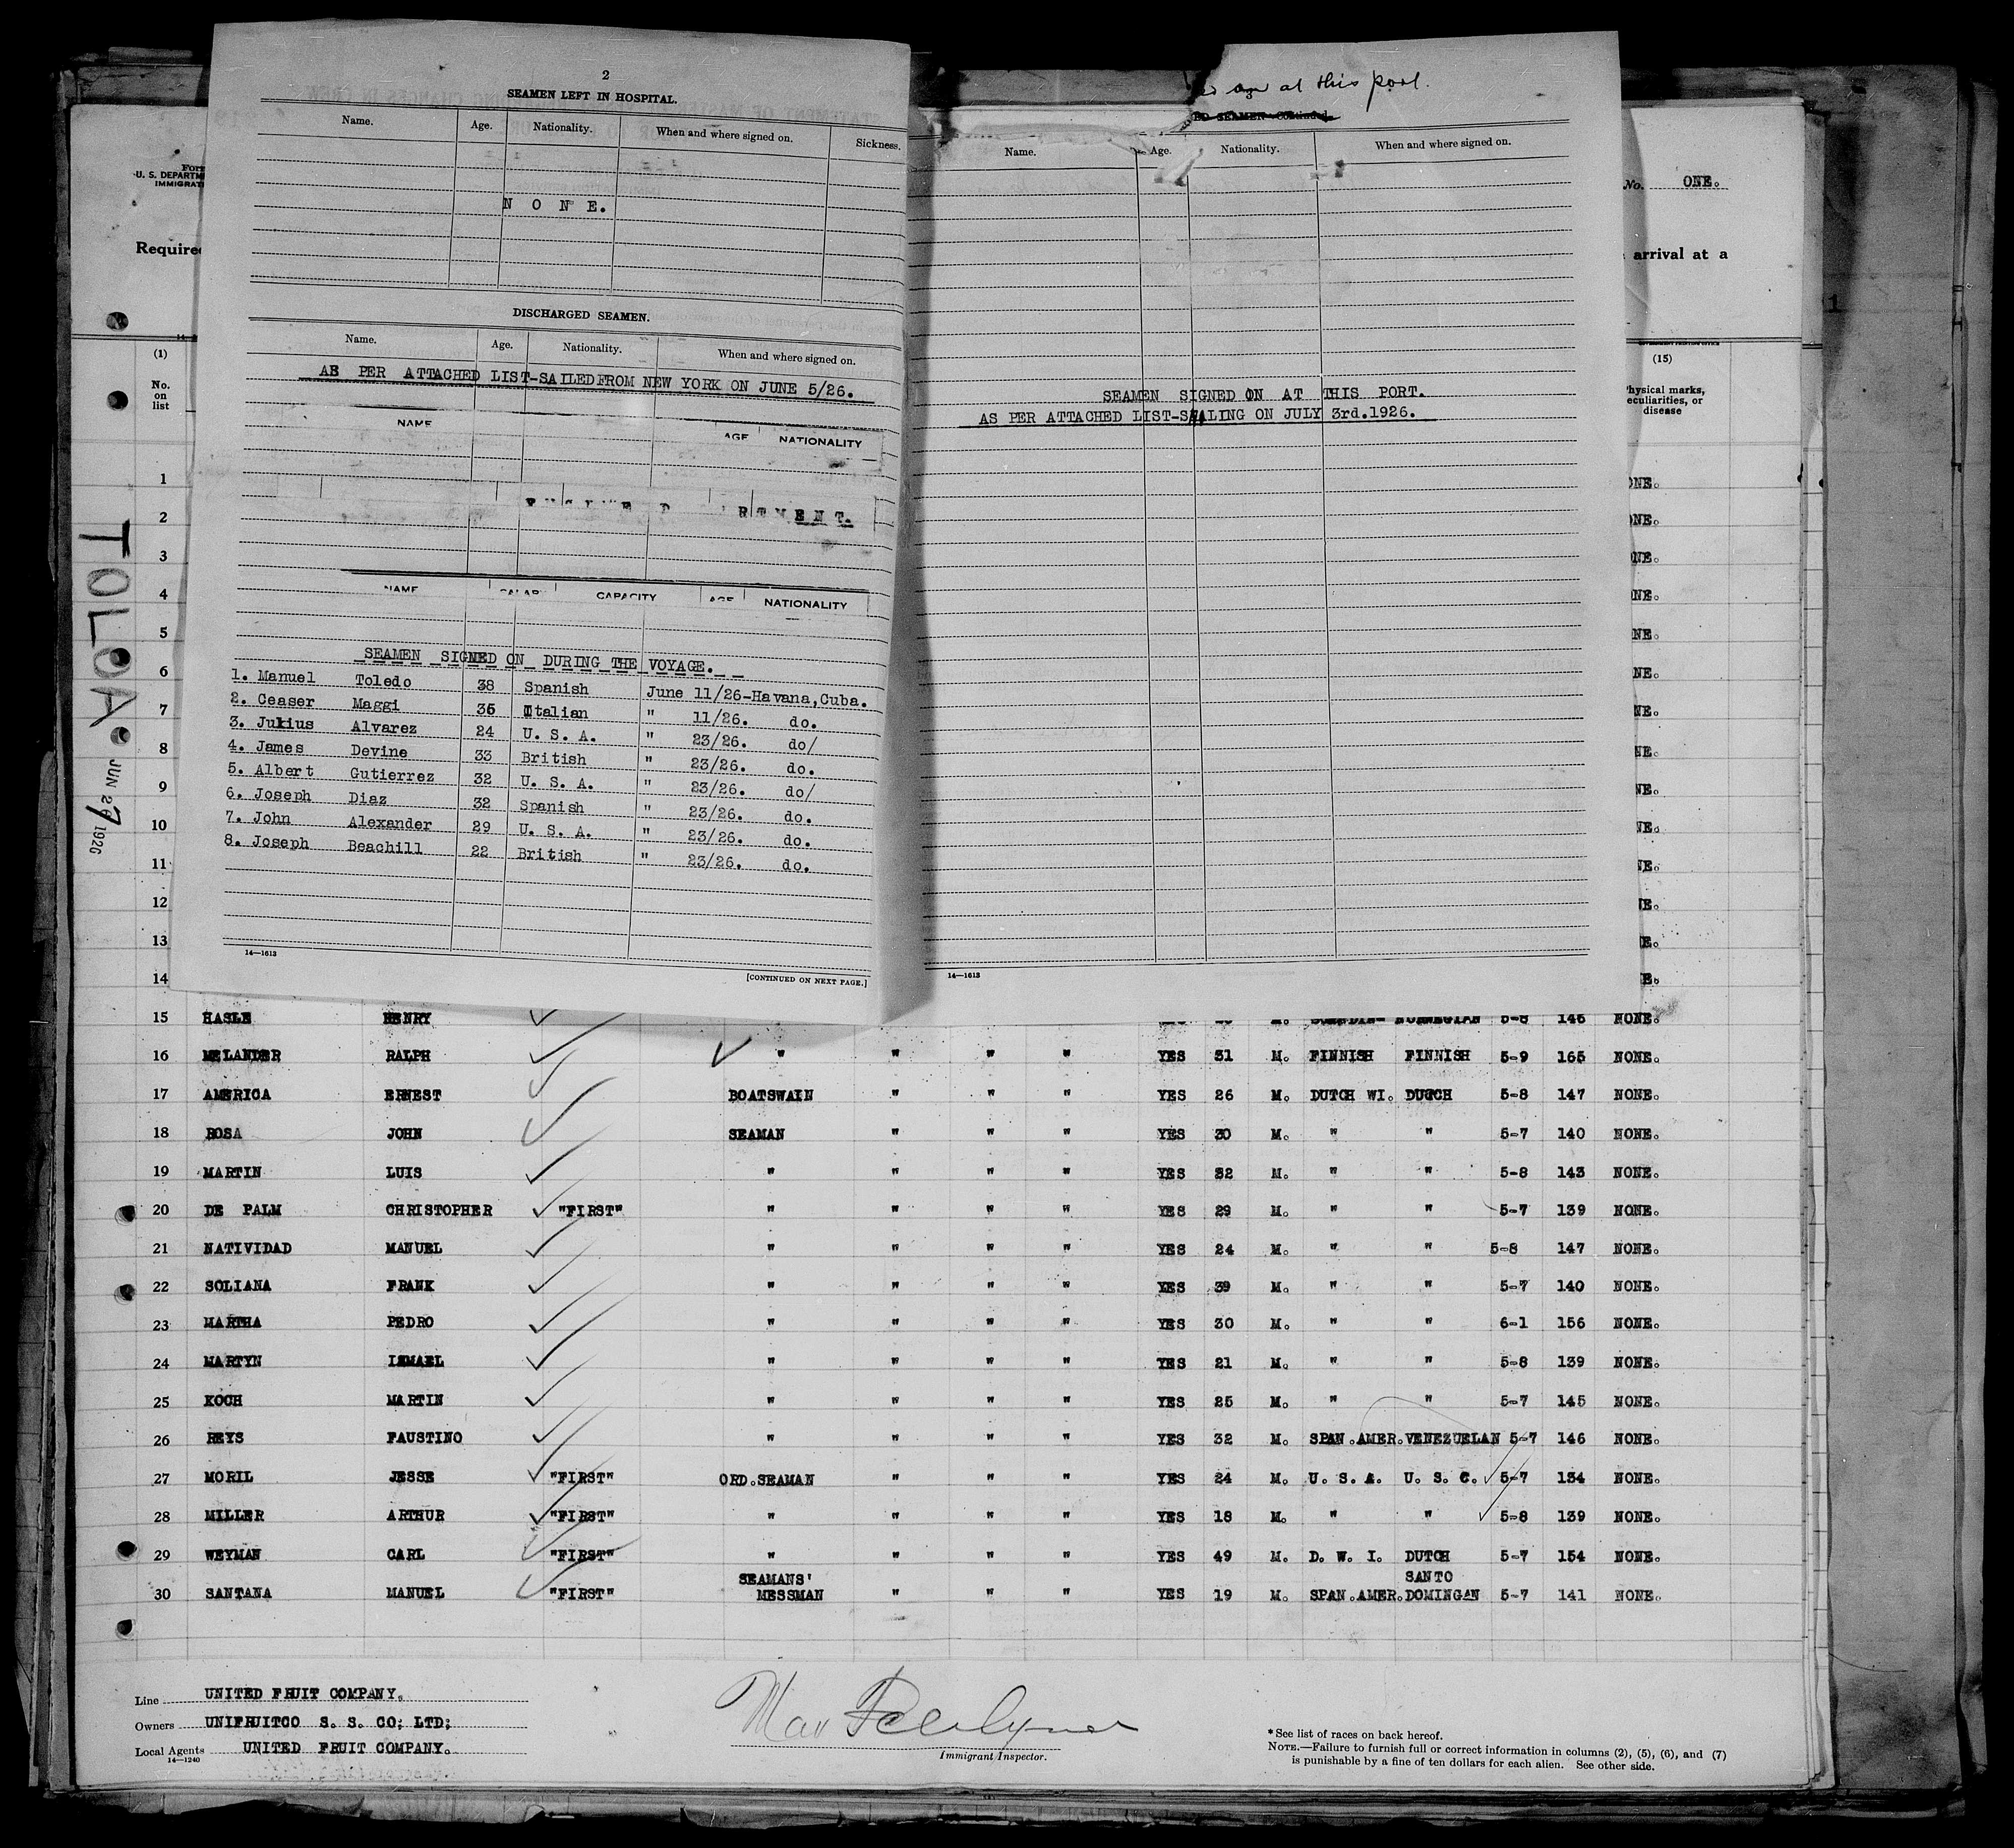 2
SEAMEN LEFT IN HOSPITAL.
Name. Age. Nationality. When and where signed on. Sickness.
N O N E.
DISCHARGED SEAMEN.
Name. Age. Nationality. When and where signed on.
AS PER ATTACHED LIST-SAILED FROM NEW YORK ON JUNE 5/26.
NAME AGE NATIONALITY
NAME CAPACITY AGE NATIONALITY
SEAMEN SIGNED ON DURING THE VOYAGE.
1. Manuel Toledo 38 Spanish June 11/26-Havana,Cuba.
2. Ceaser Maggi 36 Italian " 11/26. do.
3. Julius Alvarez 24 U. S. A. " 23/26. do/
4. James Devine 33 British " 23/26. do.
5. Albert Gutierrez 32 U. S. A. " 23/26. do/
6. Joseph Diaz 32 Spanish " 23/26. do.
7. John Alexander 29 U. S. A. " 23/26. do.
8. Joseph Beachill 22 British " 23/26. do.
14—1613
[CONTINUED ON NEXT PAGE.]
at this port.
SEAMEN—Continued.
Name. Age. Nationality. When and where signed on.
SEAMEN SIGNED ON AT THIS PORT.
AS PER ATTACHED LIST-SAILING ON JULY 3rd.1926.
14—1613
Form
U. S. DEPARTM
IMMIGRAT
No. ONE.
Require
arrival at a
(1)
No.
on
list
(15)
Physical marks,
peculiarities, or
disease
TOLOA
JUN 27 1926
1 ONE.
2 ONE.
3 ONE.
4 ONE.
5 NE.
6 NE.
7 NE.
8 NE.
9 NE.
10 NE.
11 NE.
12 E.
13 E.
14 E.
15 HASLE HENRY NORWEGIAN 5-8 146 NONE.
16 MELANDER RALPH " " " " YES 31 M. FINNISH FINNISH 5-9 165 NONE.
17 AMERICA ERNEST BOATSWAIN " " " YES 26 M. DUTCH WI. DUTCH 5-8 147 NONE.
18 ROSA JOHN SEAMAN " " " YES 30 M. " " 5-7 140 NONE.
19 MARTIN LUIS " " " " YES 32 M. " " 5-8 143 NONE.
20 DE PALM CHRISTOPHER "FIRST" " " " " YES 29 M. " " 5-7 139 NONE.
21 NATIVIDAD MANUEL " " " " YES 24 M. " " 5-8 147 NONE.
22 SOLIANA FRANK " " " " YES 39 M. " " 5-7 140 NONE.
23 MARTHA PEDRO " " " " YES 30 M. " " 6-1 156 NONE.
24 MARTYN ISMAEL " " " " YES 21 M. " " 5-8 139 NONE.
25 KOCH MARTIN " " " " YES 25 M. " " 5-7 145 NONE.
26 REYS FAUSTINO " " " " YES 32 M. SPAN.AMER. VENEZUELAN 5-7 146 NONE.
27 MORIL JESSE "FIRST" ORD.SEAMAN " " " YES 24 M. U. S. A. U. S. C. 5-7 134 NONE.
28 MILLER ARTHUR "FIRST" " " " " YES 18 M. " " 5-8 139 NONE.
29 WEYMAN CARL "FIRST" " " " " YES 49 M. D. W. I. DUTCH 5-7 154 NONE.
30 SANTANA MANUEL "FIRST" SEAMANS' MESSMAN " " " YES 19 M. SPAN.AMER. SANTO DOMINGAN 5-7 141 NONE.
Line UNITED FRUIT COMPANY.
Owners UNIFRUITCO S. S. CO; LTD;
Local Agents UNITED FRUIT COMPANY.
14—1240
Immigrant Inspector.
*See list of races on back hereof.
NOTE.—Failure to furnish full or correct information in columns (2), (5), (6), and (7)
is punishable by a fine of ten dollars for each alien. See other side.